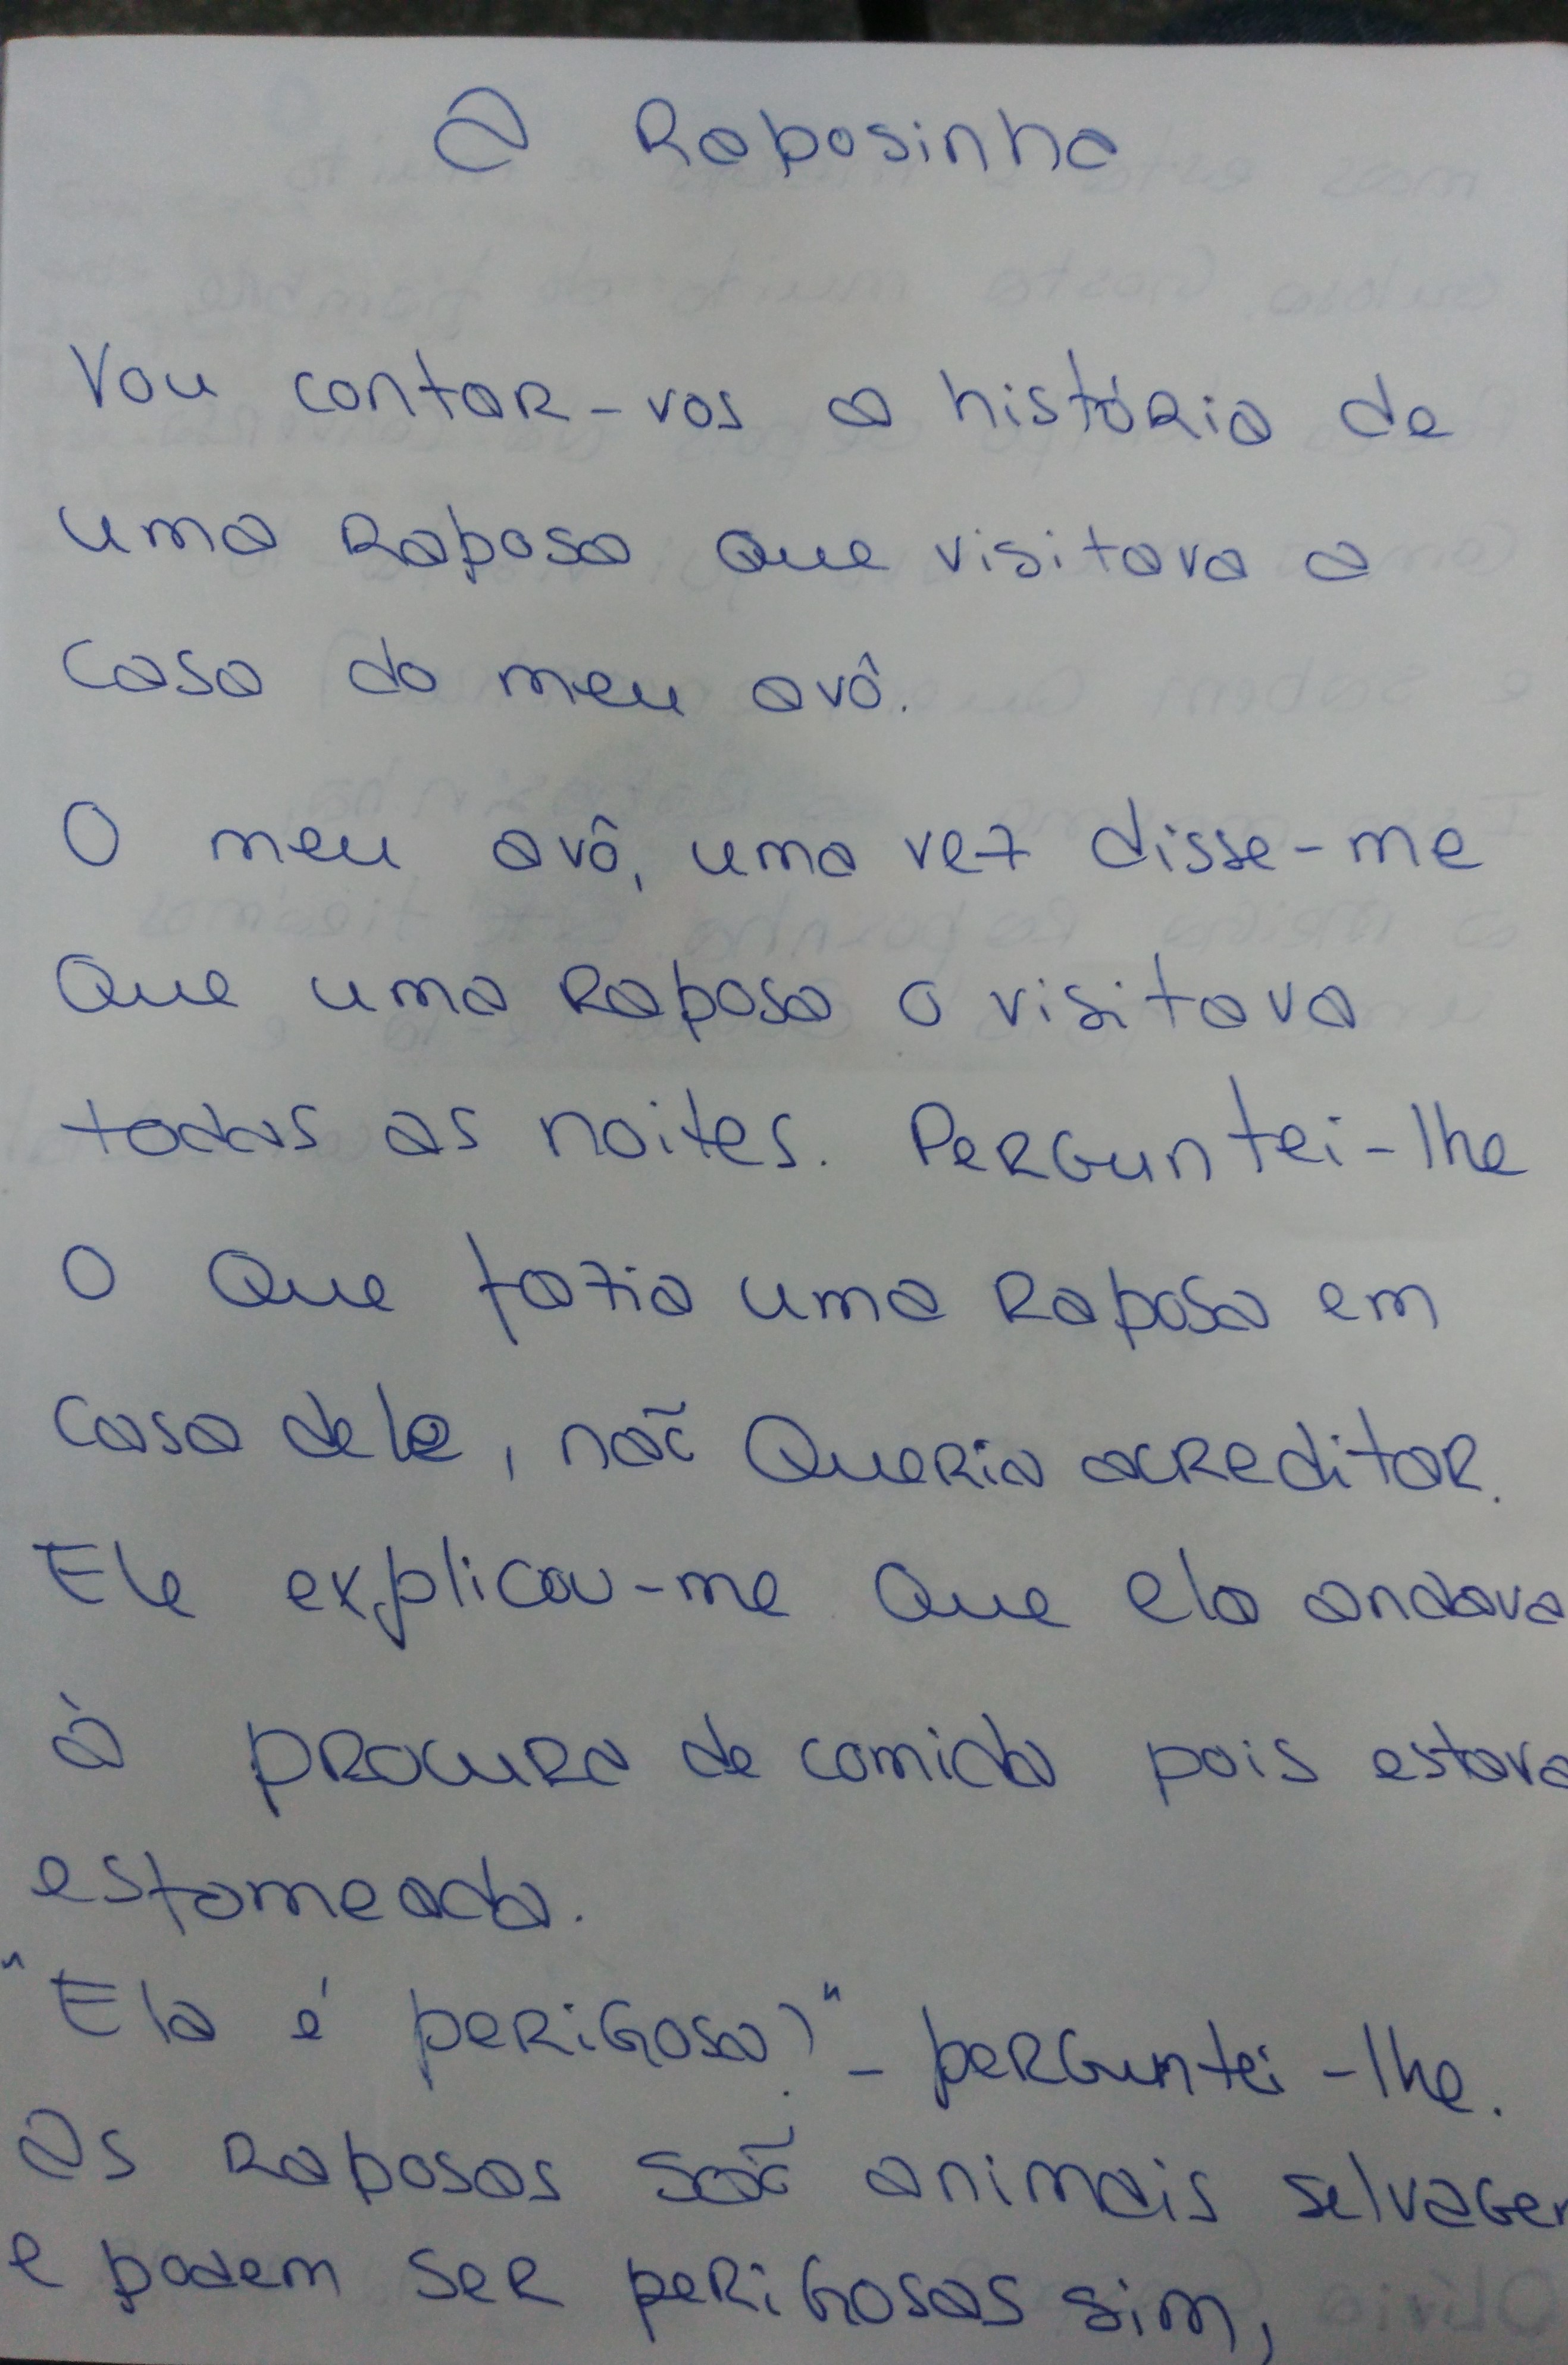 A Raposinha
Vou contar-vos a história de
uma raposa que visitava a
casa do meu avô.
O meu avô, uma vez disse-me
que uma raposa o visitava
todas as noites. Perguntei-lhe
o que fazia uma raposa em
casa dele, não queria acreditar.
Ele explicou-me que ela andava
à procura de comida pois estava
esfomeada.
"Ela é perigosa?" - perguntei-lhe.
As raposas são animais selvagen
e podem ser perigosas sim,